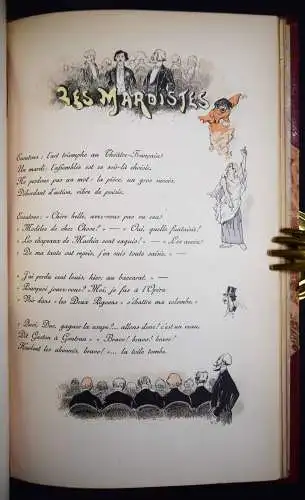 LES MARDISTES
Écoutons : l'art triomphe au Théâtre-Français!
Un mardi; l'assemblée est ce soir-là choisie.
Ne perdons pas un mot : la pièce, un gros succès,
Débordant d'action, vibre de poésie.
Écoutons: « Chère belle, avez-vous pas vu ces
« Modèles de chez Chose? — Oui, quelle fantaisie!
« Les chapeaux de Machin sont exquis! —
« De ma tante est repris, j'en suis toute saisie. » —
« J'ai perdu cent louis, hier, au baccarat. » —
« Pourquoi jouez-vous? Moi, je fus à l'Opéra
« Voir dans « les Deux Pigeons » s'ébattre ma colombe. »
« Quoi, Duc, gagner la coupe!... allons donc! c'est un veau.
Dit Gaston à Gontran » « Bravo! bravo! bravo!
Hurlent les abonnés, bravo! »... la toile tombe.